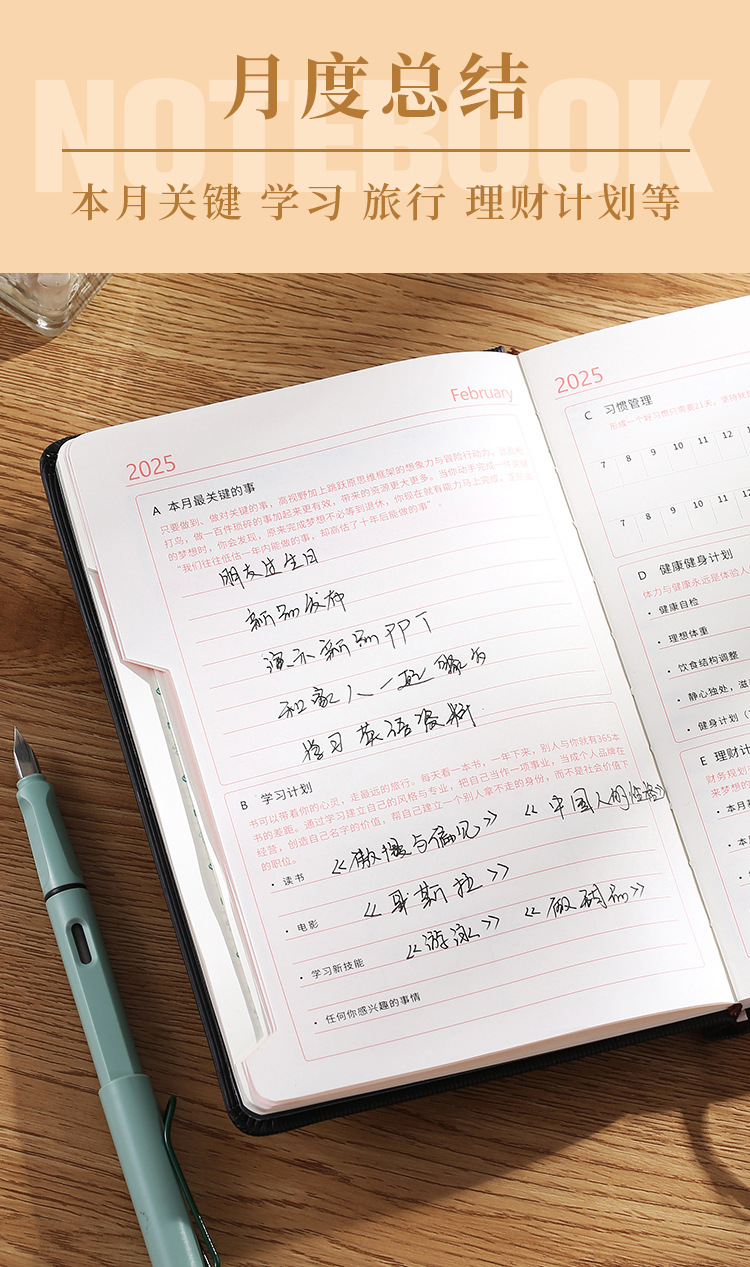 NOTEBOOK
月度总结
本月关键 学习 旅行 理财计划等
2025
February
A 本月最关键的事
只要做到、做对关键的事，高视野加上跳跃原思维框架的想象力与冒险行动力，
打鸟，做一百件琐碎的事加起来更有效，带来的资源更大更多。当你动手完成一件关键
的梦想时，你会发现，原来完成梦想不必等到退休，你现在就有能力马上完成，
“我们往往低估一年内能做的事，却高估了十年后能做的事”。
朋友过生日
新品发布
演示新品PPT
和家人一起
学习英语资料
B 学习计划
书可以带着你的心灵，走最远的旅行。每天看一本书，一年下来，别人与你就有365本
书的差距。通过学习建立自己的风格与专业，把自己当作一项事业，当成个人品牌在
经营，创造自己名字的价值，帮自己建立一个别人拿不走的身份，而不是社会价值下
的职位。
• 读书 《傲慢与偏见》 《中国人的性格》
• 电影 《哥斯拉》
• 学习新技能 《游泳》 《做甜品》
• 任何你感兴趣的事情
2025
C 习惯管理
形成一个好习惯只需要21天，坚持就
7 8 9 10 11 12
7 8 9 10 11 12
D 健康健身计划
体力与健康永远是体验人
• 健康自检
• 理想体重
• 饮食结构调整
• 静心独处，滋
• 健身计划（
E 理财计
财务规划
来梦想的
• 本月
• 本